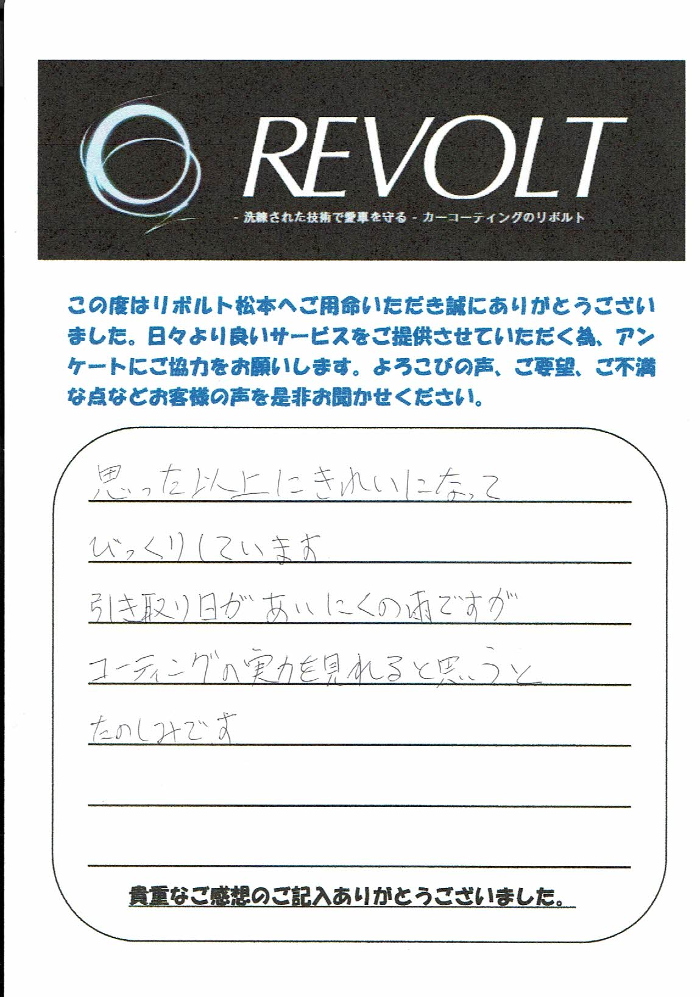 REVOLT
- 洗練された技術で愛車を守る - カーコーティングのリボルト
この度はリボルト松本へご用命いただき誠にありがとうござい
ました。日々より良いサービスをご提供させていただく為、アン
ケートにご協力をお願いします。よろこびの声、ご要望、ご不満
な点などお客様の声を是非お聞かせください。
思った以上にきれいになって
びっくりしています
引き取り日があいにくの雨ですが
コーティングの実力を見れると思うと
たのしみです
貴重なご感想のご記入ありがとうございました。